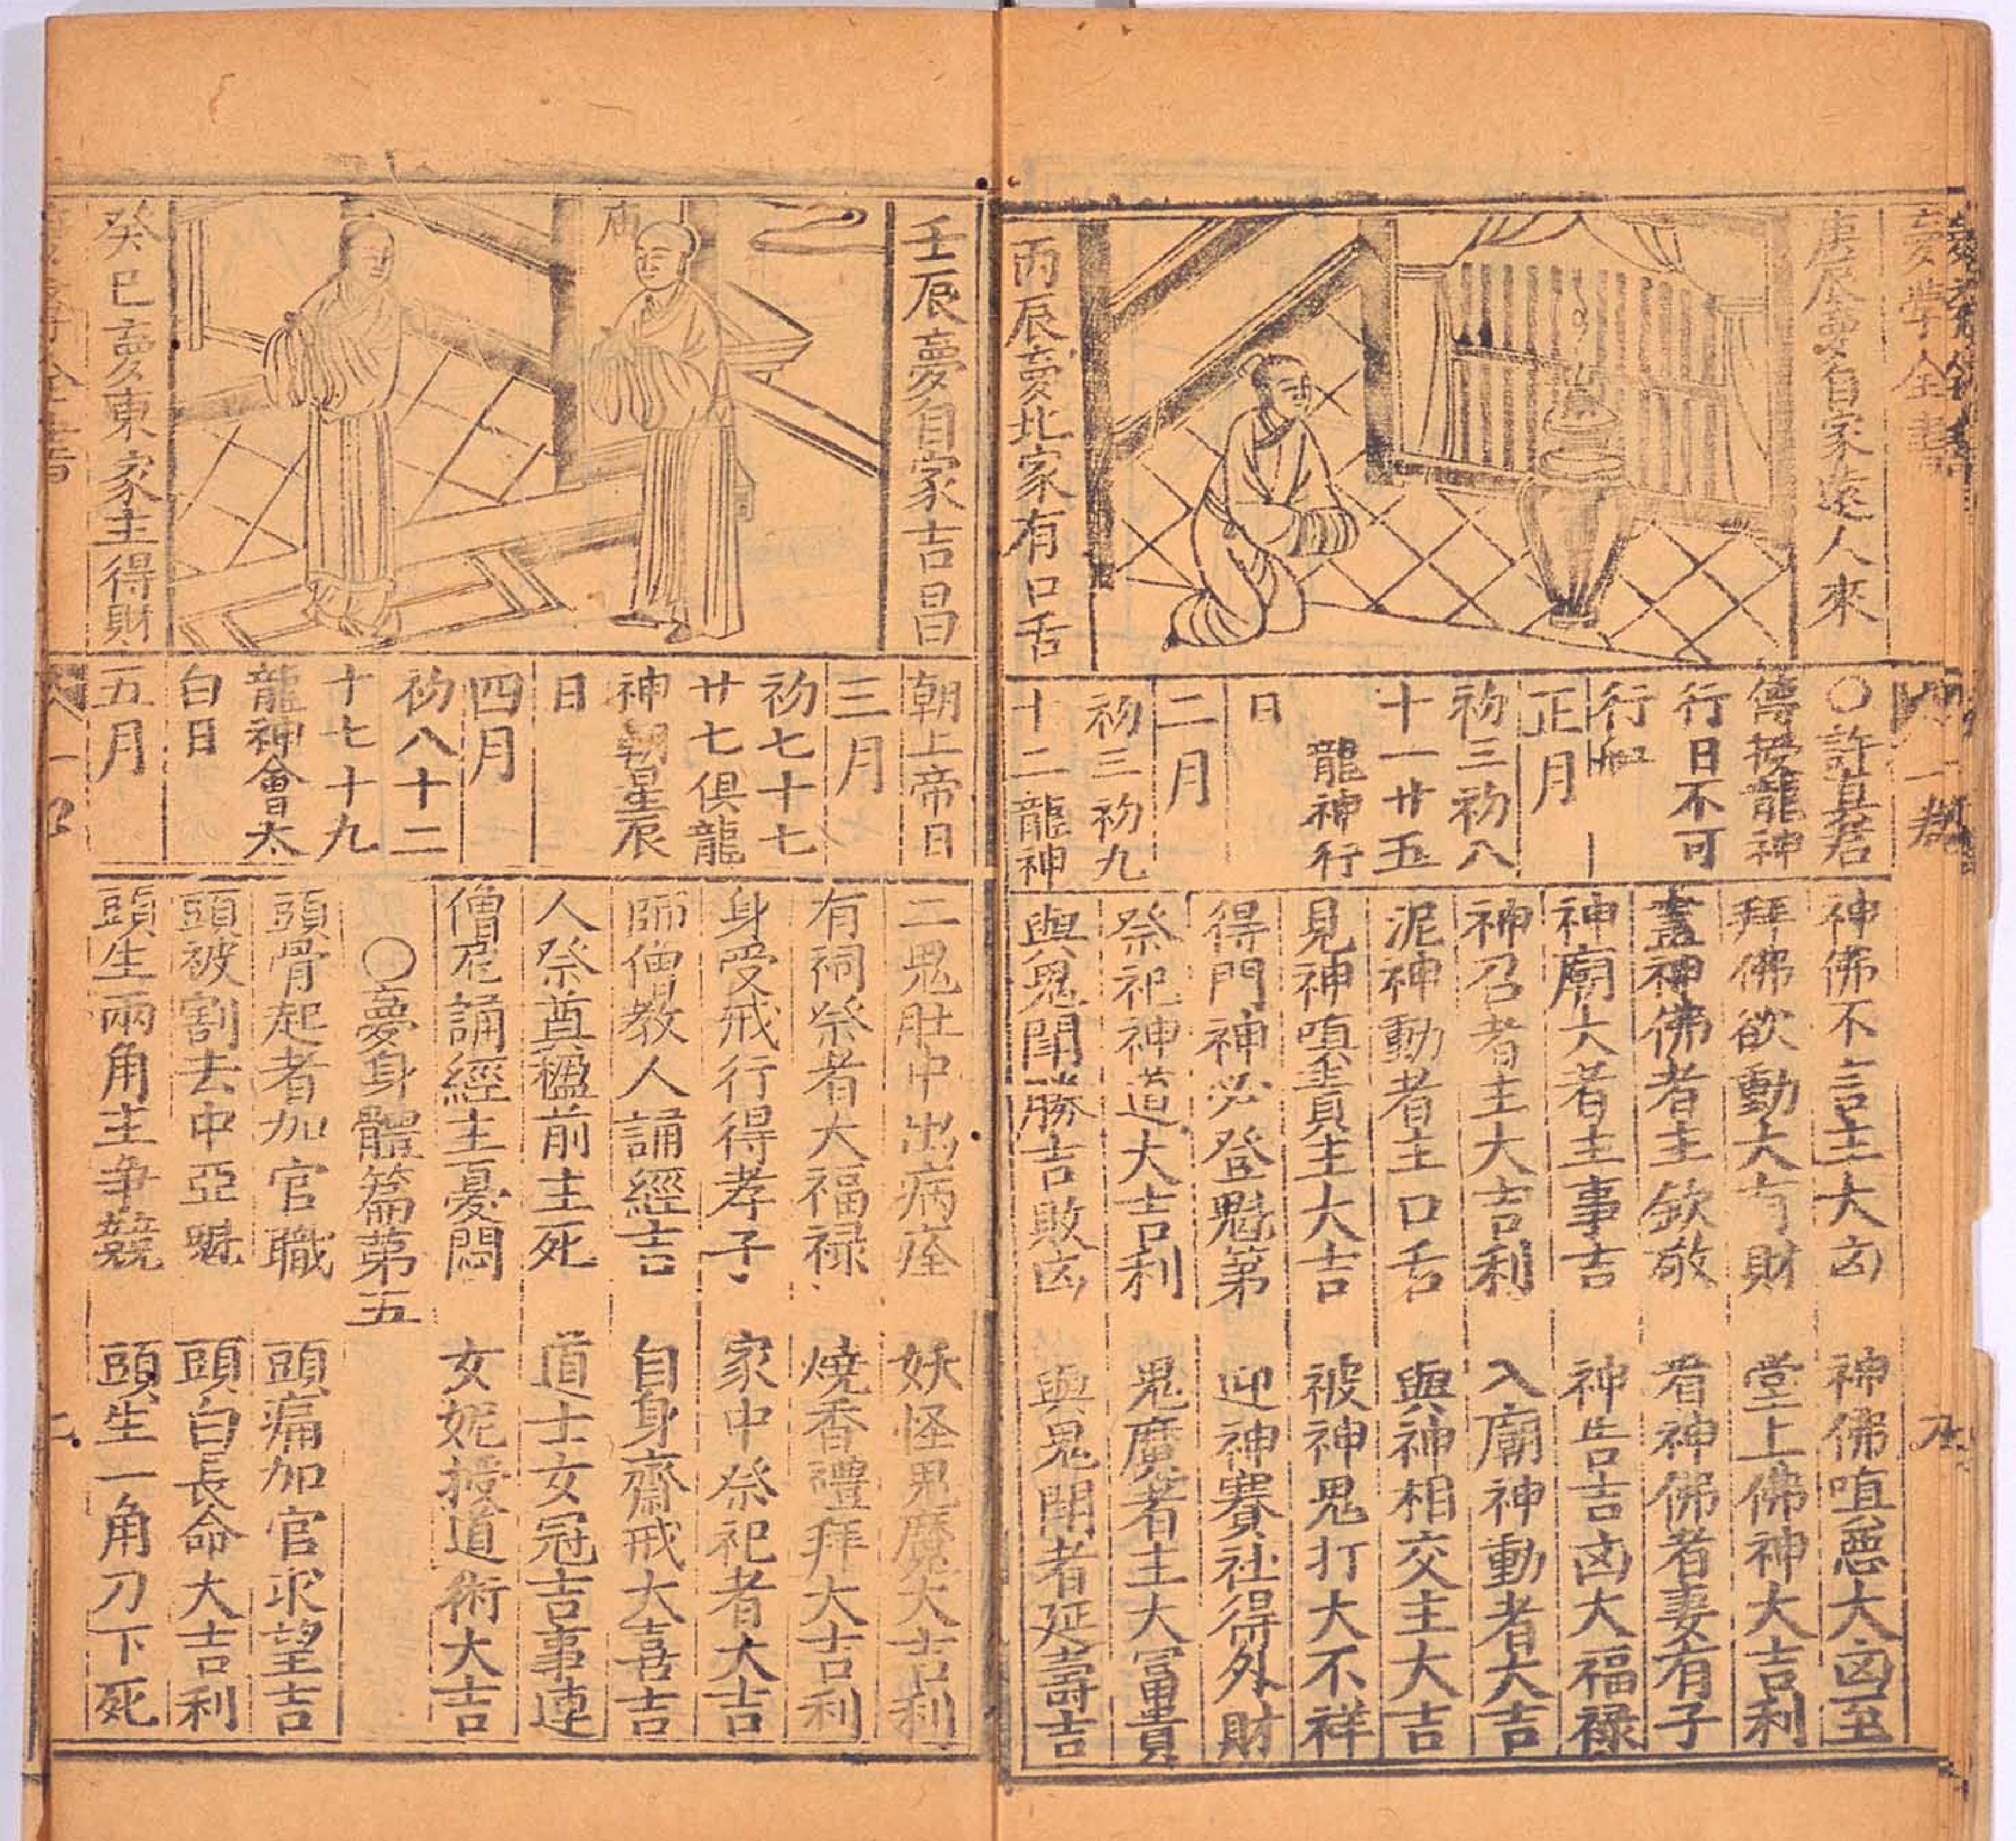 夢學全書
庚辰夢自家遠人來
丙辰夢北家有口舌
〇許真君
傳授龍神
行日不可
行船
正月
初三初八
十一廿五
龍神行
日
二月
初三初九
十二龍神
神佛不言主大凶
神佛嗔惡大凶至
拜佛欲動大有財
堂上佛神大吉利
畫神佛者主欽敬
看神佛者妻有子
神廟大者主事吉
神告吉凶大福禄
神召者主大吉利
入廟神動者大吉
泥神動者主口舌
與神相交主大吉
見神嗔責主大吉
被神鬼打大不祥
得門神必登魁第
迎神賽社得外財
祭祀神道大吉利
鬼魔者主大冨貴
與鬼鬧勝吉敗凶
與鬼鬧者延壽吉
壬辰夢自家吉昌
庙
癸巳夢東家主得財
朝上帝日
三月
初七十七
廿七俱龍
神朝星辰
日
四月
初八十二
十七十九
龍神會太
白日
五月
二鬼肚中出病痊
妖怪鬼魔大吉利
有祠祭者大福禄
燒香禮拜大吉利
身受戒行得孝子
家中祭祀者大吉
師僧教人誦經吉
自身齋戒大喜吉
人祭奠楹前主死
道士女冠吉事連
僧尼誦經主憂悶
女妮授道術大吉
〇夢身體篇第五
頭骨起者加官職
頭痛加官求望吉
頭被割去中亞魁
頭白長命大吉利
頭生兩角主争競
頭生一角刀下死